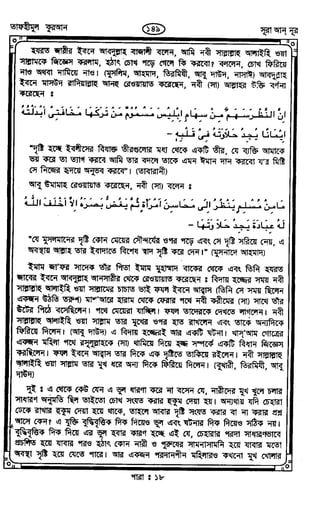 তাফহীমুল কুরআন
১৪৯
সূরা আন নূর
হযরত জারীর ইবনে আবদুল্লাহ বাজালী বলেন, আমি নবী সাল্লাল্লাহু আলাইহি ওয়া
সাল্লামকে জিজ্ঞেস করলাম, হঠাৎ চোখ পড়ে গেলে কি করবো? বললেন, চোখ ফিরিয়ে
নাও অথবা নামিয়ে নাও। (মুসলিম, আহমাদ, তিরমিযী, আবু দাউদ, নাসাঈ) আবদুল্লাহ
ইবনে মাসউদ রাদিয়াল্লাহু আনহু রেওয়ায়াত করেছেন, নবী (সা) আল্লাহর উক্তি বর্ণনা
করেছেন :
إن النظر سهم من سهام ابليس مسموم من تركها مخافتى ابدلته
ايمانا يجد حلاوته فى قلبه -
"দৃষ্টি হচ্ছে ইবলীসের বিষাক্ত তীরগুলোর মধ্য থেকে একটি তীর, যে ব্যক্তি আমাকে
ভয় করে তা ত্যাগ করবে আমি তার বদলে তাকে এমন ঈমান দান করবো যার মিষ্টি
সে নিজের হৃদয়ে অনুভব করবে।" (তাবারানী)
আবু উমামাহ রেওয়ায়াত করেছেন, নবী (সা) বলেন :
ما من مسلم ينظر الى محاسن امرأة ثم يغض بصره الا أخلف الله
له عبادة يجد حلاوتها -
"যে মুসলমানের দৃষ্টি কোন মেয়ের সৌন্দর্যের ওপর পড়ে এবং সে দৃষ্টি সরিয়ে নেয়, এ
অবস্থায় আল্লাহ তার ইবাদাতে বিশেষ স্বাদ সৃষ্টি করে দেন।" (মুসনাদে আহমাদ)
ইমাম জা'ফর সাদেক তাঁর পিতা ইমাম মুহাম্মাদ বাকের থেকে এবং তিনি হযরত
জাবের ইবনে আবদুল্লাহ আনসারীর থেকে রেওয়ায়াত করেছেন : বিদায় হজ্জের সময় নবী
সাল্লাল্লাহু আলাইহি ওয়া সাল্লামের চাচাত ভাই ফযল ইবনে আব্বাস (তিনি সে সময় ছিলেন
একজন উঠতি তরুণ) মাশ'আরে হারাম থেকে ফেরার পথে নবী করীমের (সা) সাথে তাঁর
উটের পিঠে বসেছিলেন। পথে মেয়েরা যাচ্ছিল। ফযল তাদেরকে দেখতে লাগলেন। নবী
সাল্লাল্লাহু আলাইহি ওয়া সাল্লাম তার মুখের ওপর হাত রাখলেন এবং তাকে অন্যদিকে
ফিরিয়ে দিলেন। (আবু দাউদ) এ বিদায় হজ্জেরই আর একটি ঘটনা। খাস'আম গোত্রের
একজন মহিলা পথে রসূলুল্লাহকে (সা) থামিয়ে দিয়ে হজ্জ সম্পর্কে একটি বিধান জিজ্ঞেস
করছিলেন। ফযল ইবনে আব্বাস তার দিকে এক দৃষ্টে তাকিয়ে রইলেন। নবী সাল্লাল্লাহু
আলাইহি ওয়া সাল্লাম তার মুখ ধরে অন্য দিকে ফিরিয়ে দিলেন। (বুখারী, তিরমিযী, আবু
দাউদ)
দুই : এ থেকে কেউ যেন এ ভুল ধারণা করে না বসেন যে, নারীদের মুখ খুলে চলার
সাধারণ অনুমতি ছিল তাইতো চোখ সংযত করার হুকুম দেয়া হয়। অন্যথায় যদি চেহারা
ঢেকে রাখার হুকুম দেয়া হয়ে থাকে, তাহলে আবার দৃষ্টি সংযত করার বা না করার প্রশ্ন
আসে কেন? এ যুক্তি বুদ্ধিবৃত্তিক দিক দিয়েও ভুল এবং ঘটনার দিক দিয়েও সঠিক নয়।
বুদ্ধিবৃত্তিক দিক দিয়ে এর ভুল হবার কারণ হচ্ছে এই যে, চেহারার পরদা সাধারণভাবে
প্রচলিত হয়ে যাবার পরও হঠাৎ কোন নারী ও পুরুষের সামনাসামনি হয়ে যাবার মতো
অবস্থা সৃষ্টি হয়ে যেতে পারে। আর একজন পরদানশীন মহিলারও কখনো মুখ খোলার
পারা : ১৮